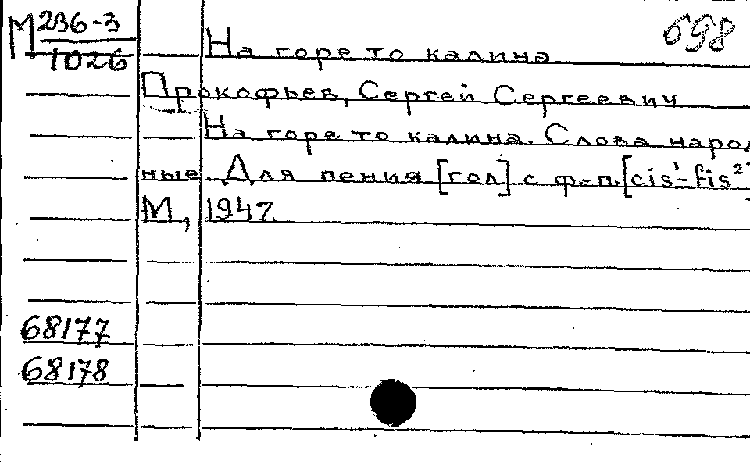 М 236-3
1026
698
На горе то калина
Прокофьев, Сергей Сергеевич
На горе то калина. Слова народ
ные. Для пения [гол] с ф.-п. [cis¹-fis²]
М, 1947.
68177
68178